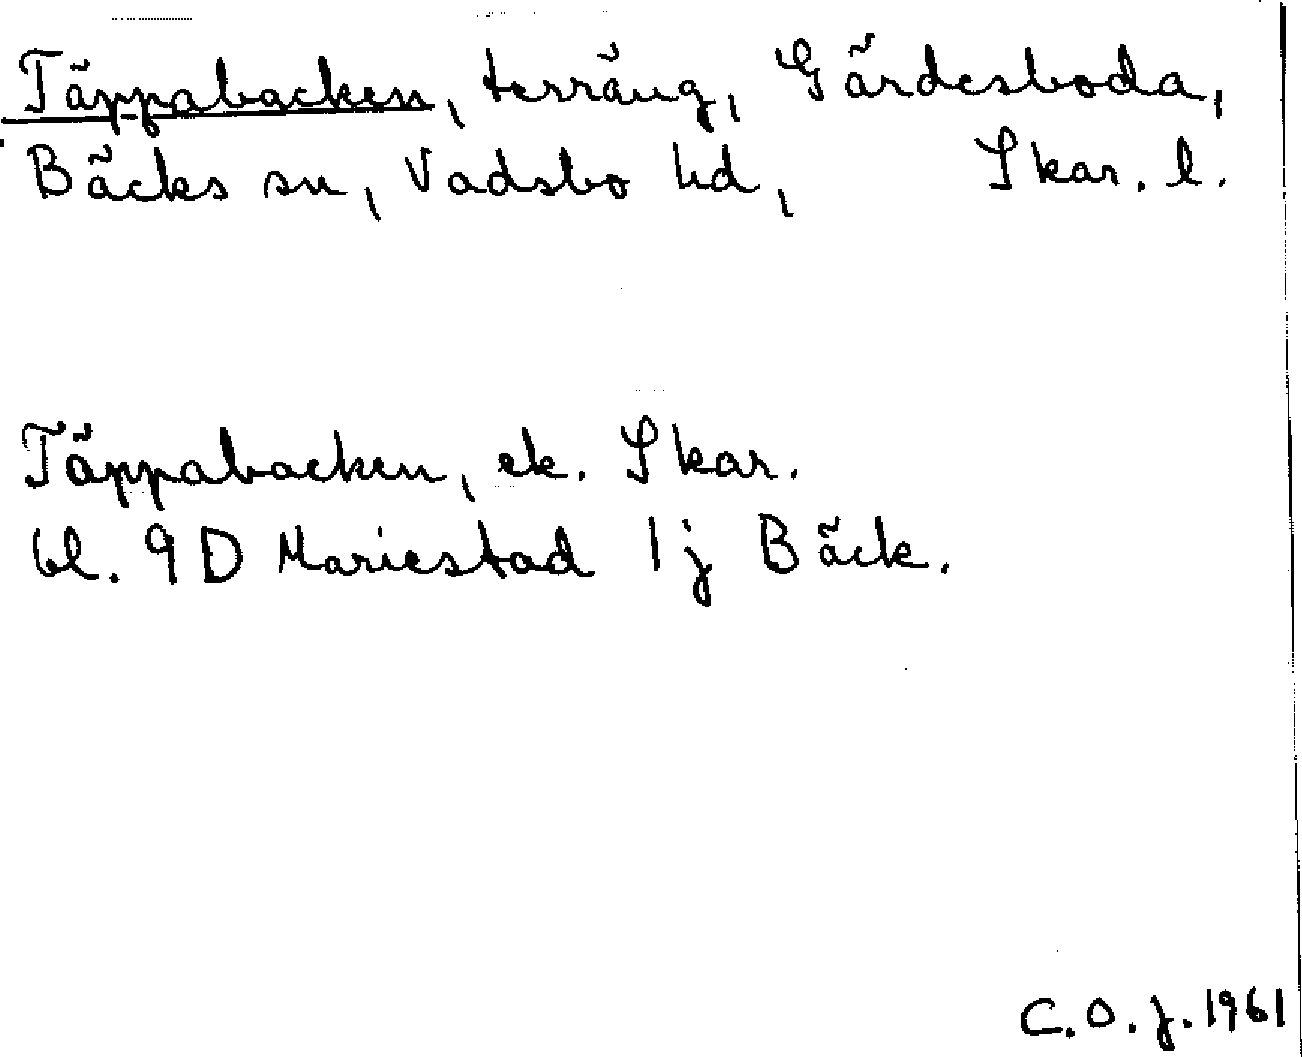 Täppabacken, terräng, Gärdesboda,
Bäcks sn, Vadsbo hd, Skar. l.
Täppabacken, ek. Skar.
bl. 9D Mariestad 1j Bäck.
C.O.J. 1961